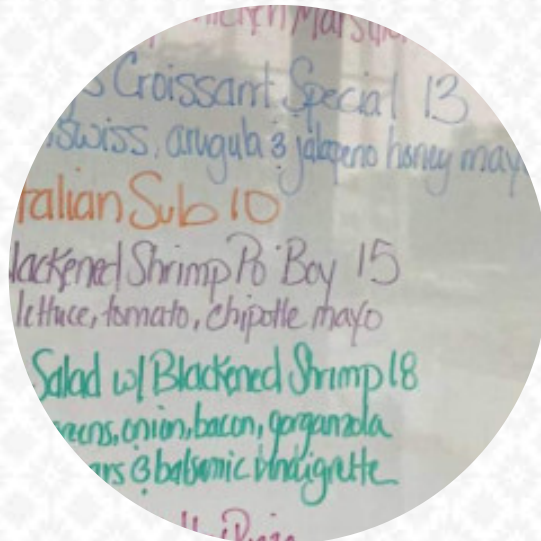 Croissant Special 13
Swiss, arugula & jalapeno honey
Italian Sub 10
Blackened Shrimp Po Boy 15
lettuce, tomato, chipotle mayo
Salad w/ Blackened Shrimp 18
onion, bacon, gorganzola
& balsamic vinaigrette